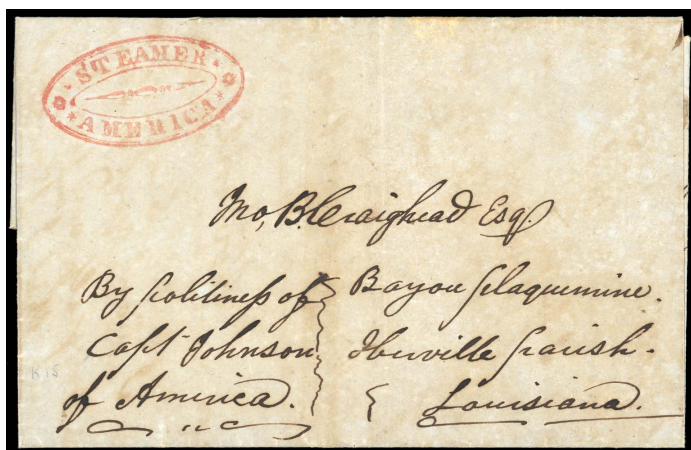 STEAMER
AMERICA
Jno, B. Craighead Esq.
By politiness of
Capt Johnson
of America.
Bayou plaquemine.
Iberville parish.
Louisiana.
K15